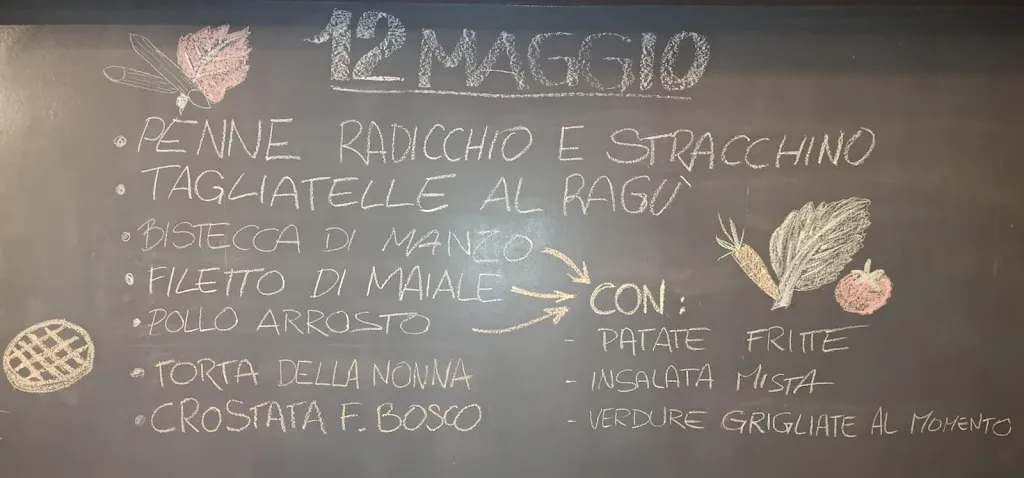 12 MAGGIO
• PENNE RADICCHIO E STRACCHINO
• TAGLIATELLE AL RAGÙ
• BISTECCA DI MANZO
• FILETTO DI MAIALE
• POLLO ARROSTO
CON:
- PATATE FRITTE
- INSALATA MISTA
- VERDURE GRIGLIATE AL MOMENTO
• TORTA DELLA NONNA
• CROSTATA F. BOSCO